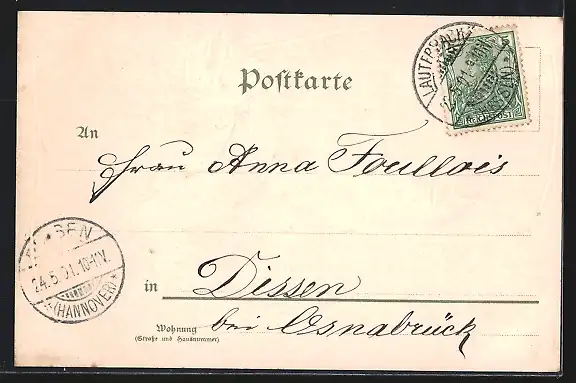 Postkarte
An
Frau Anna Foullois
in Dissen
bei Osnabrück
Wohnung
(Straße und Hausnummer)
LAUTERBACH
5
REICHSPOST
24.5.01.10-11V.
*(HANNOVER)*